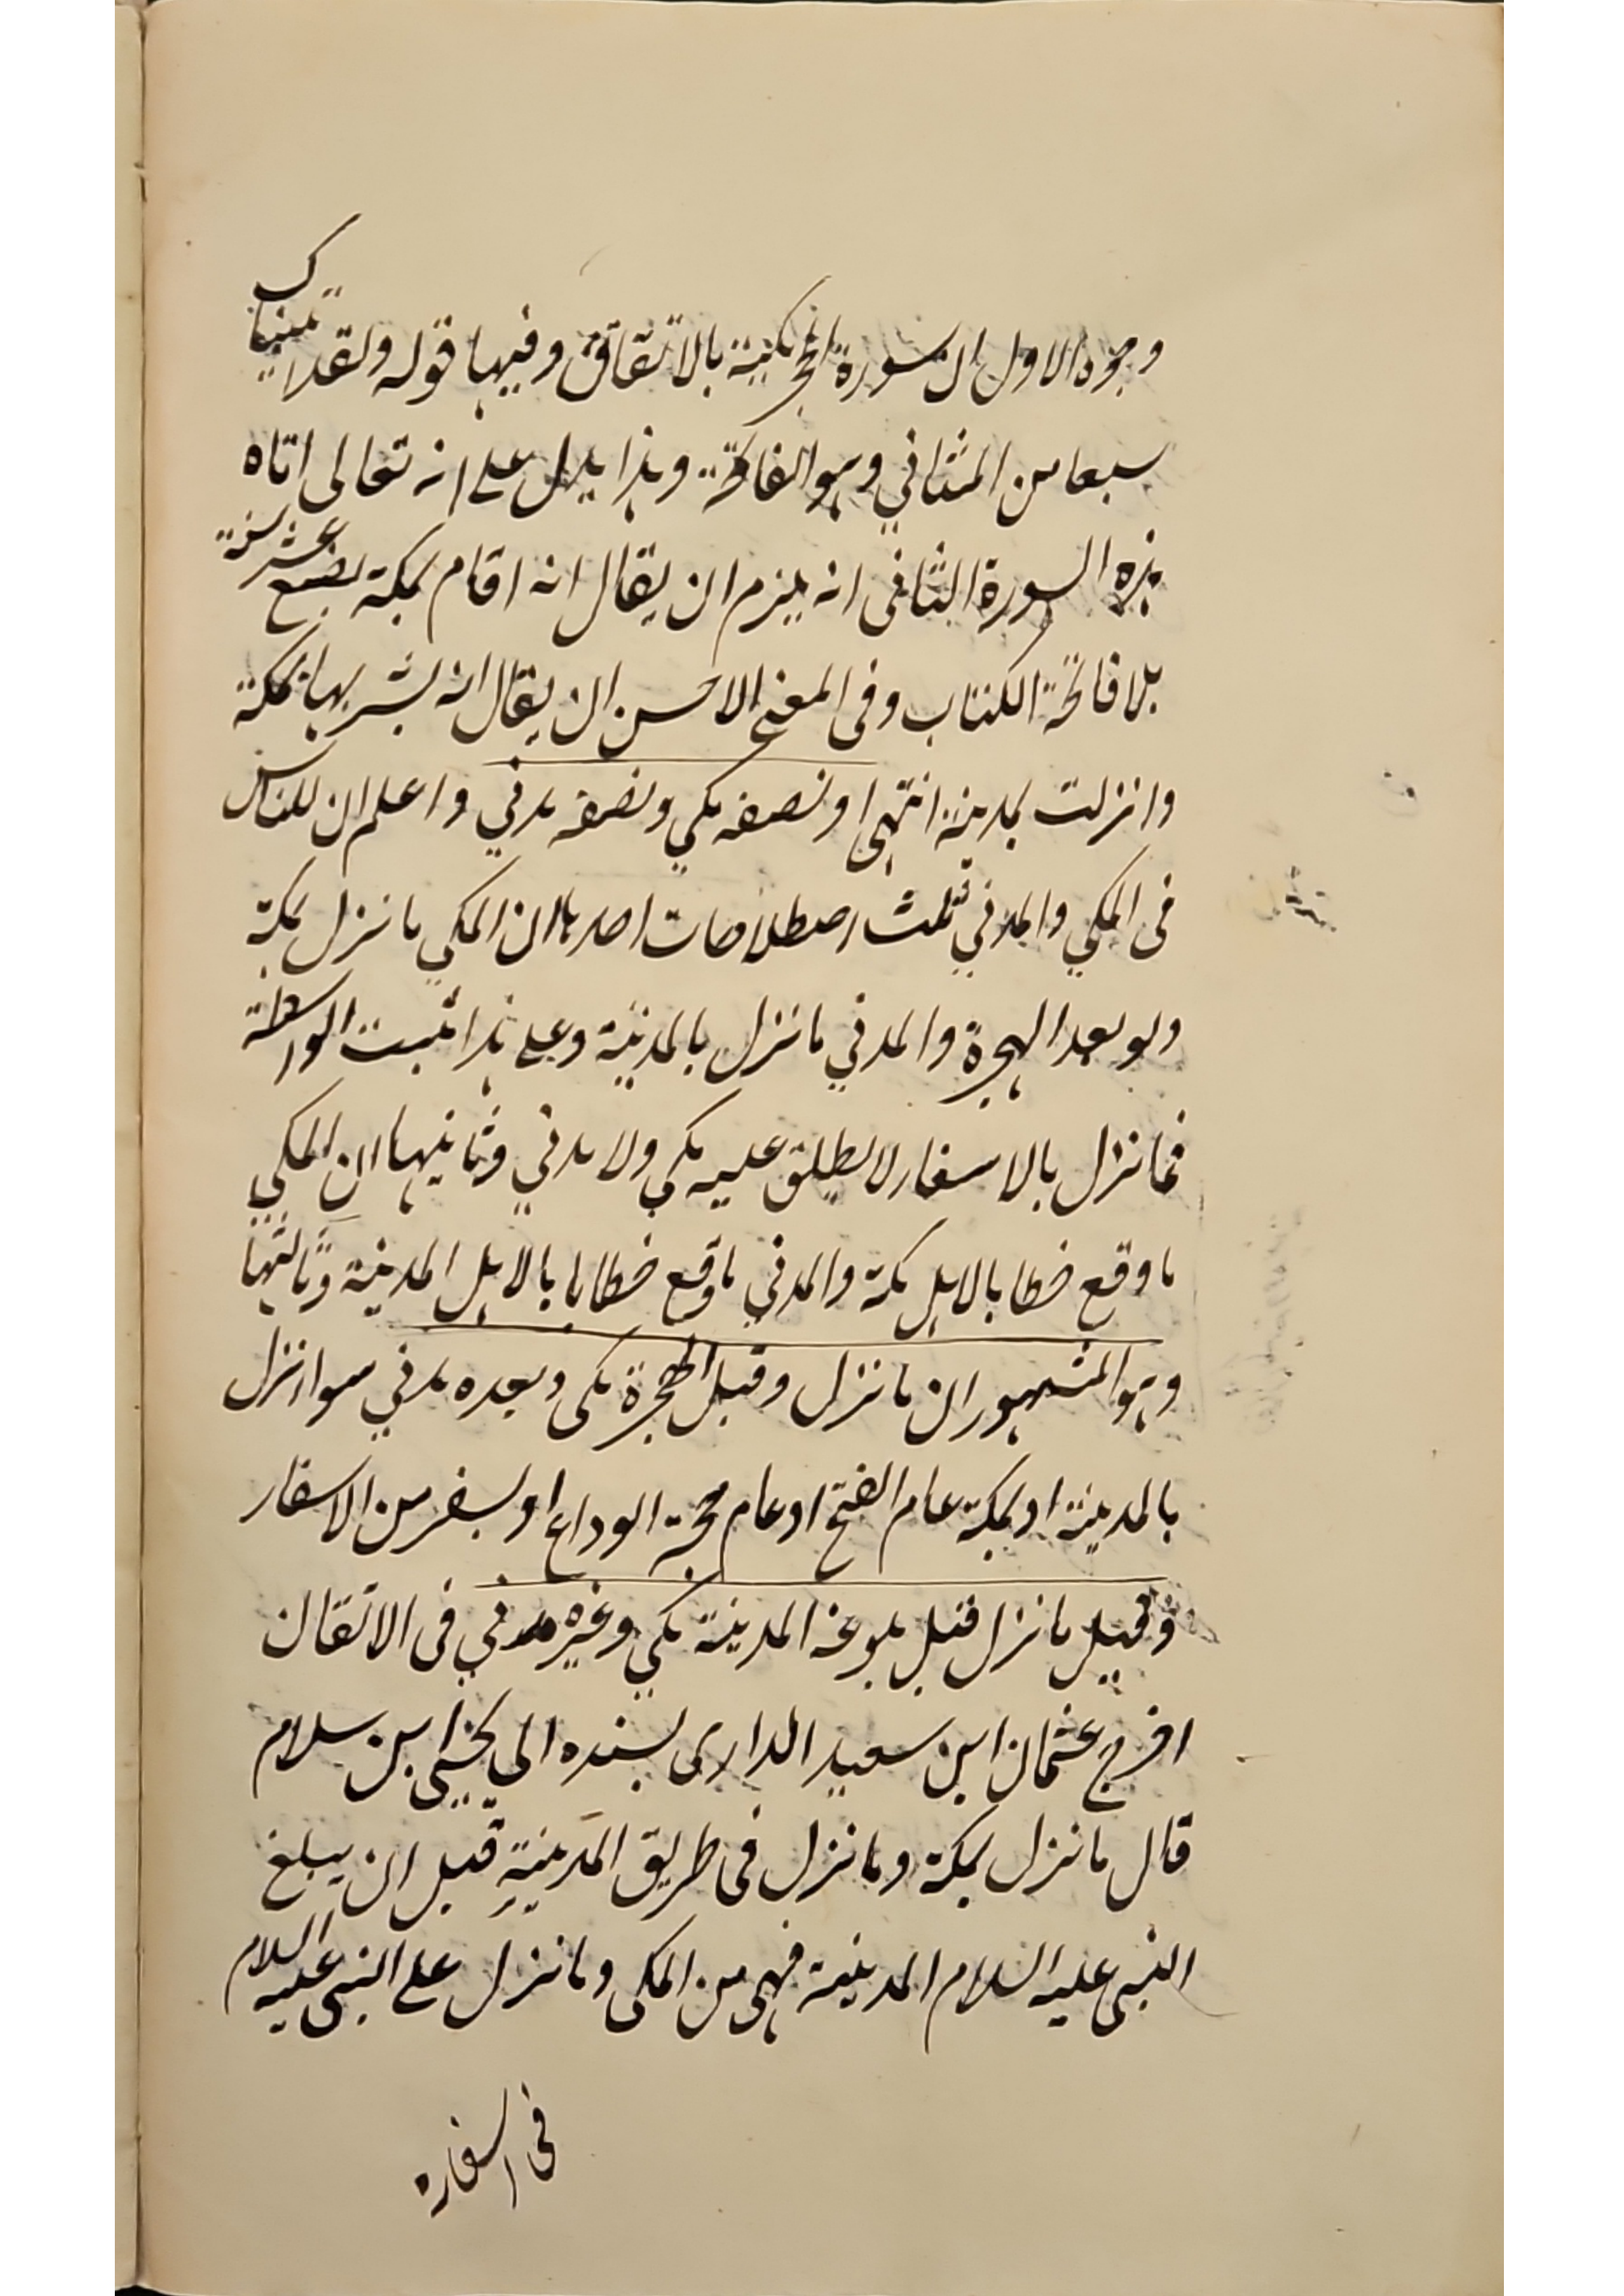 وجوه الاول ان سورة الحجر مكية بالاتفاق وفيها قوله ولقد اتيناك
سبعا من المثاني وهو الفاتحة وهذا يدل على انه تعالى اتاه
هذه السورة الثاني انه يلزم ان يقال انه اقام بمكة بضع عشر سنة
بلا فاتحة الكتاب وفى المغنى الاحسن ان يقال انه بشر بها بمكة
وانزلت بمدينة انتهى او نصفه مكي ونصفه مدني واعلم ان للناس
فى المكي والمدني ثلث اصطلاحات احدها ان المكي ما نزل بمكة
ولو بعد الهجرة والمدني ما نزل بالمدينة وعلى هذا تثبت الواسطة
فما نزل بالاسفار لا يطلق عليه مكي ولا مدني وثانيها ان المكي
ما وقع خطابا لاهل مكة والمدني ما وقع خطابا بالاهل المدينة وثالثها
وهو المشهور ان ما نزل وقبل الهجرة مكى وبعده مدني سوا نزل
بالمدينة او بمكة عام الفتح او عام حجة الوداع او بسفر من الاسفار
وقيل ما نزل قبل بلوغه المدينة مكي وغيره مدني فى الاتقان
اخرج عثمان ابن سعيد الدارى بسنده الي يحيى ابن سلام
قال ما نزل بمكة وما نزل فى طريق المدينة قبل ان يبلغ
النبى عليه السلام المدينة فهى من المكى وما نزل على النبى عليه السلام
فى اسفاره